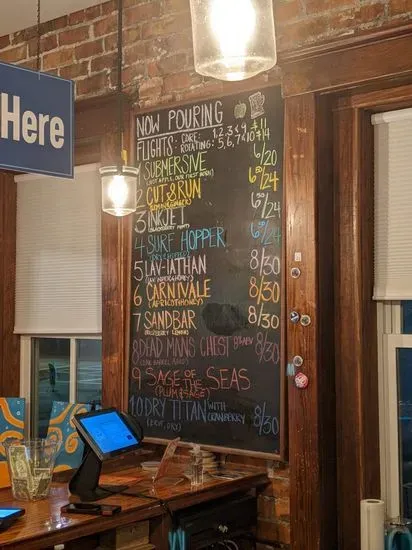 Here
NOW POURING
FLIGHTS: CORE: 1, 2, 3, 4 $11
ROTATING: 5, 6, 7, 10 $14
1 SUBMERSIVE 6/20
2 CUT & RUN 6⁵⁰/24
3 INKJET 6⁵⁰/24
4 SURF HOPPER 6⁵⁰/24
5 LAV-IATHAN 8/30
6 CARNIVALE 8/30
(APRICOT+HONEY)
7 SANDBAR 8/30
8 DEAD MAN'S CHEST 8/30
9 SAGE OF THE SEAS
(PLUM & SAGE)
10 DRY TITAN WITH CRANBERRY 8/30